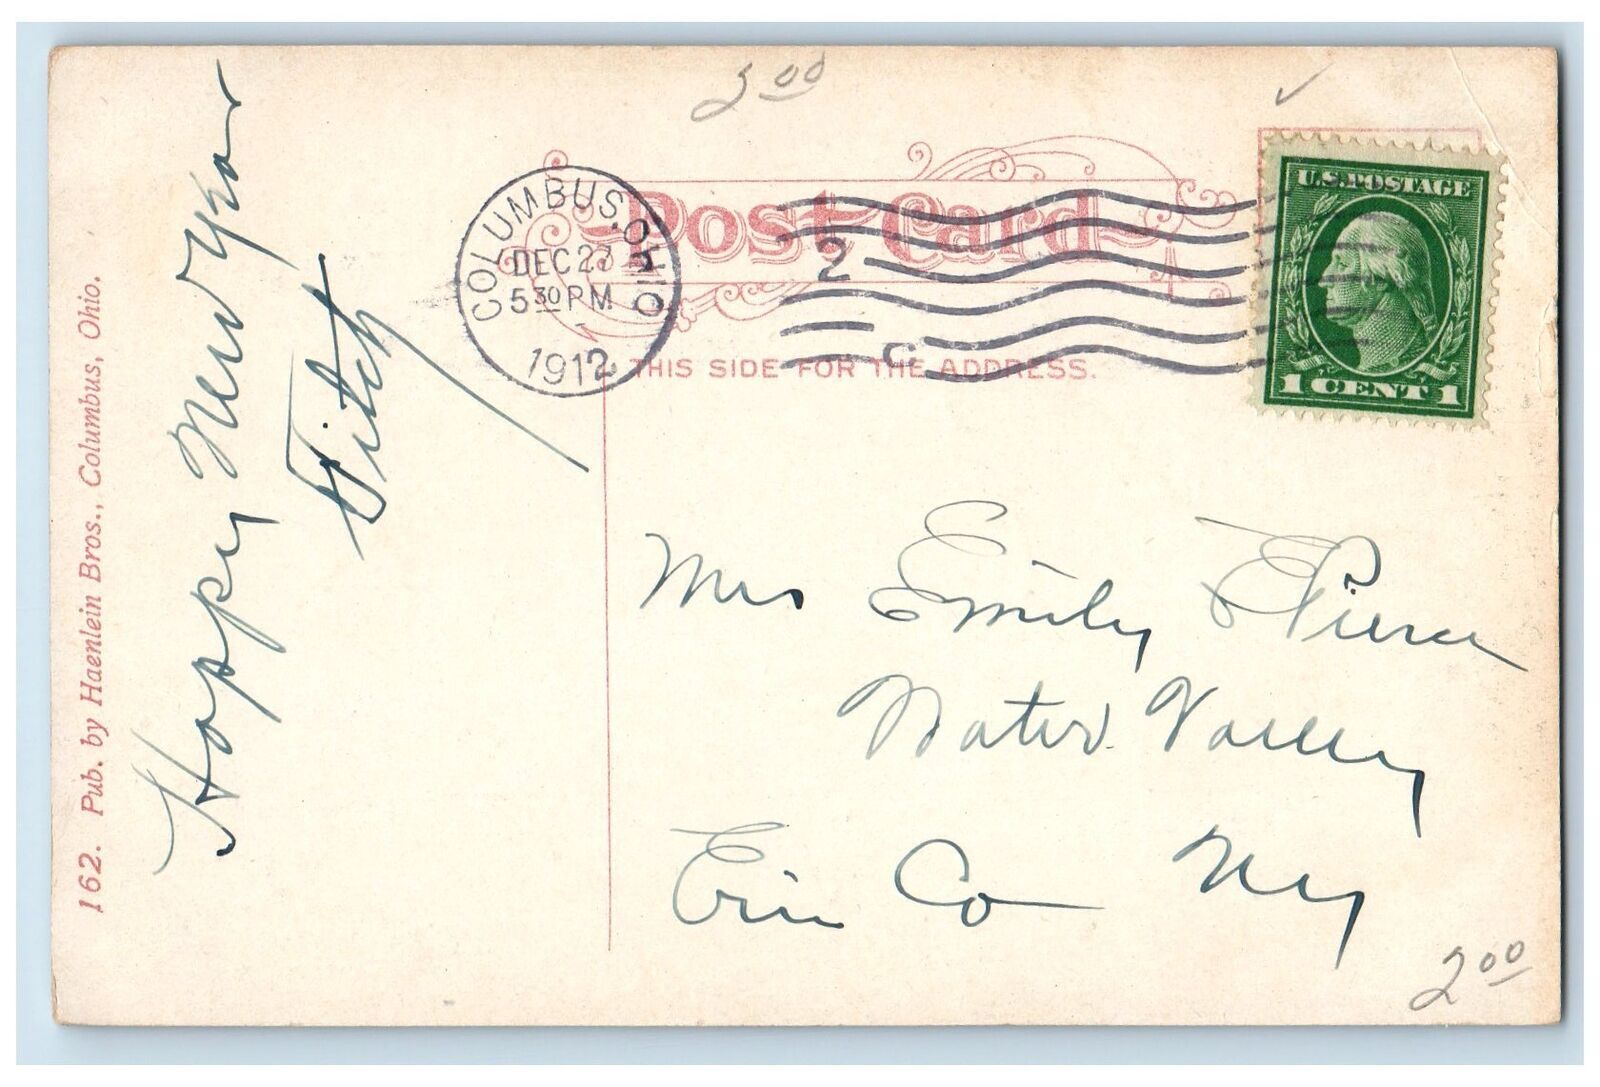 2 00
✓
Post Card
THIS SIDE FOR THE ADDRESS.
COLUMBUS, OHIO
DEC 27
5 30 PM
1912
2
C
U.S. POSTAGE
1 CENT 1
Happy New Year
Fitch
Mrs Emily E Pierce
Water Valley
Erie Co NY
2 00
162. Pub. by Haenlein Bros., Columbus, Ohio.